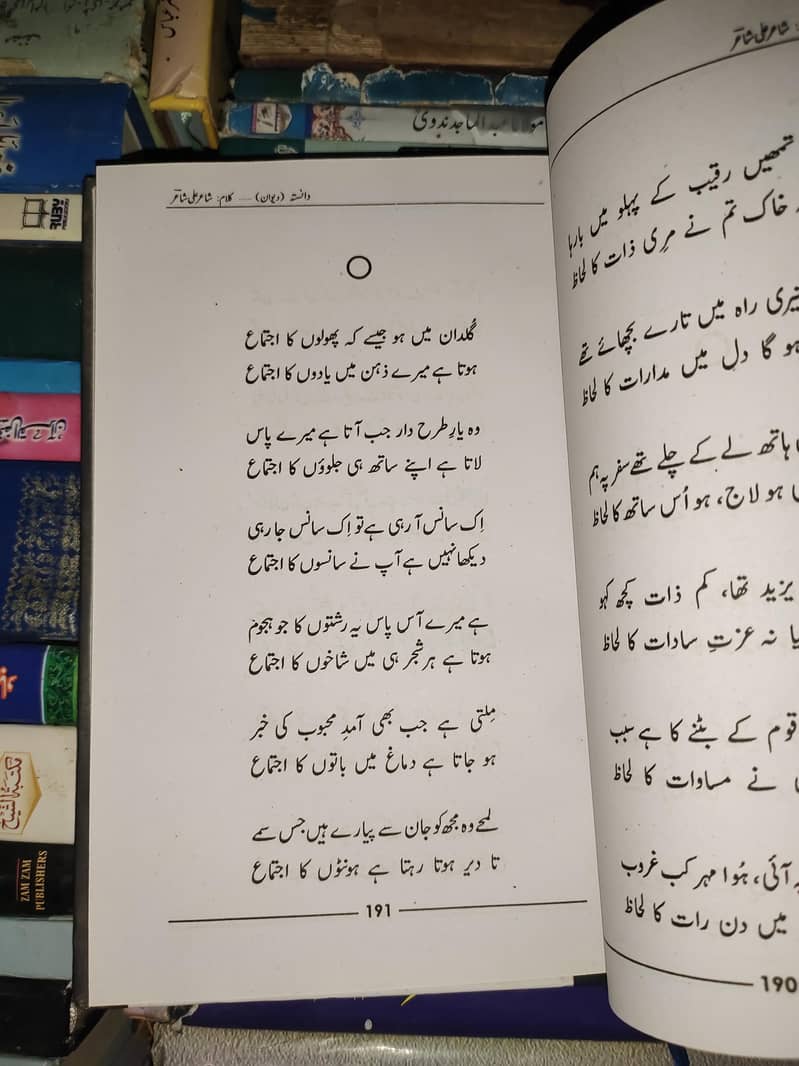 مولانا عبد الماجد ندوی
RUBY
ZAM ZAM
PUBLISHERS
شاعر علی شاعرؔ
تمھیں رقیب کے پہلو میں بارہا
خاک تم نے مِری ذات کا لحاظ
تیری راہ میں تارے بچھائے تھے
ہو گا دل میں مدارات کا لحاظ
ہاتھ لے کے چلے تھے سفر پہ ہم
ہو لاج، ہو اُس ساتھ کا لحاظ
یزید تھا، کم ذات کچھ کہو
نہ عزتِ سادات کا لحاظ
قوم کے بٹنے کا ہے سبب
نے مساوات کا لحاظ
آئی، ہُوا مہر کب غروب
میں دن رات کا لحاظ
190
دانستہ (دیوان) --- کلام: شاعر علی شاعرؔ
گلدان میں ہو جیسے کہ پھولوں کا اجتماع
ہوتا ہے میرے ذہن میں یادوں کا اجتماع
وہ یارِ طرح دار جب آتا ہے میرے پاس
لاتا ہے اپنے ساتھ ہی جلوؤں کا اجتماع
اِک سانس آ رہی ہے تو اِک سانس جا رہی
دیکھا نہیں ہے آپ نے سانسوں کا اجتماع
ہے میرے آس پاس یہ رشتوں کا جو ہجوم
ہوتا ہے ہر شجر ہی میں شاخوں کا اجتماع
مِلتی ہے جب بھی آمدِ محبوب کی خبر
ہو جاتا ہے دماغ میں باتوں کا اجتماع
لمحے وہ مجھ کو جان سے پیارے ہیں جس سمے
تا دیر ہوتا رہتا ہے ہونٹوں کا اجتماع
191